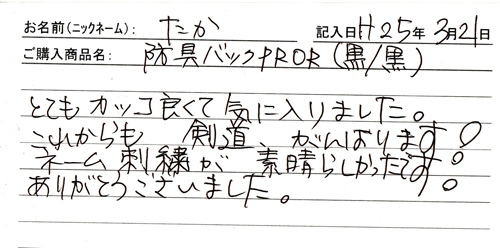 お名前(ニックネーム): たか 記入日 H25年 3月21日
ご購入商品名: 防具バックPROR(黒/黒)
とてもカッコ良くて気に入りました。
これからも 剣道、がんばります!
ネーム刺繍が 素晴らしかったです!
ありがとうございました。